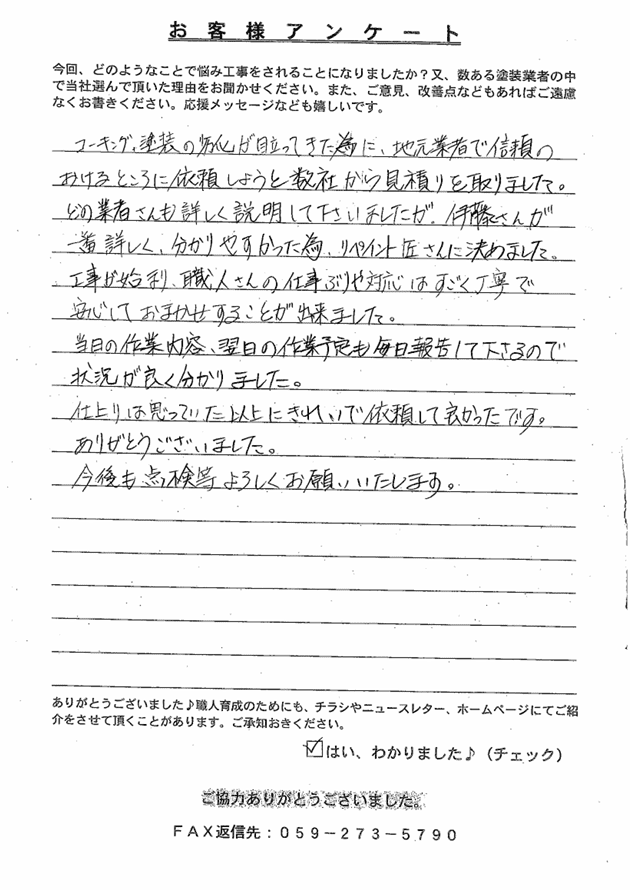 お客様アンケート
今回、どのようなことで悩み工事をされることになりましたか？又、数ある塗装業者の中
で当社選んで頂いた理由をお聞かせください。また、ご意見、改善点などもあればご遠慮
なくお書きください。応援メッセージなども嬉しいです。
コーキング、塗装の劣化が目立ってきた為に、地元業者で信頼の
おけるところに依頼しようと数社から見積りを取りました。
どの業者さんも詳しく説明して下さいましたが、伊藤さんが
一番詳しく、分かりやすかった為、リペイント匠さんに決めました。
工事が始まり、職人さんの仕事ぶりや対応はすごく丁寧で
安心しておまかせすることが出来ました。
当日の作業内容、翌日の作業予定も毎日報告して下さるので
状況が良く分かりました。
仕上りは思っていた以上にきれいで依頼して良かったです。
ありがとうございました。
今後も点検等よろしくお願いいたします。
ありがとうございました♪職人育成のためにも、チラシやニュースレター、ホームページにてご紹
介をさせて頂くことがあります。ご承知おきください。
☑はい、わかりました♪（チェック）
ご協力ありがとうございました。
ＦＡＸ返信先：０５９－２７３－５７９０